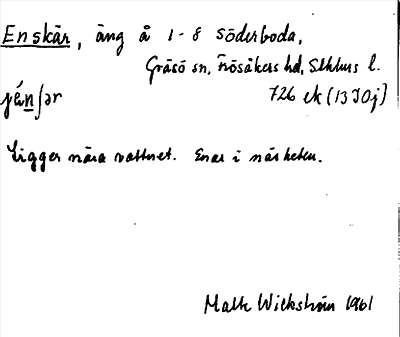 Enskär, äng å 1-8 Söderboda,
Gräsö sn, Frösåkers hd, Sthlms l.
726 ek (13I0j)
Ligger nära vattnet. Enar i närheten.
Malte Wickström 1961